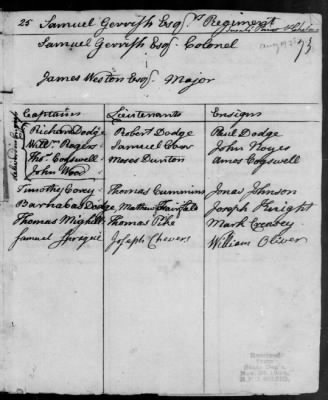 25 Samuel Gerrish Esqrs Regiment
73
Samuel Gerrish Esqr Colonel
James Weston Esqr Major
Captains Lieutenants Ensigns
Richard Dodge Robert Dodge Paul Dodge
Willm Rogers Samuel John Noyes
Thos Cogswell Moses Danton Amos Cogswell
John Wood
Timothy Corey Thomas Cummins Jonas Johnson
Barnabas Dodge Mathew Fairfield Joseph Knight
Thomas Mighill Thomas Pike Mark Creasey
Samuel Sprigue Joseph Chever William Oliver